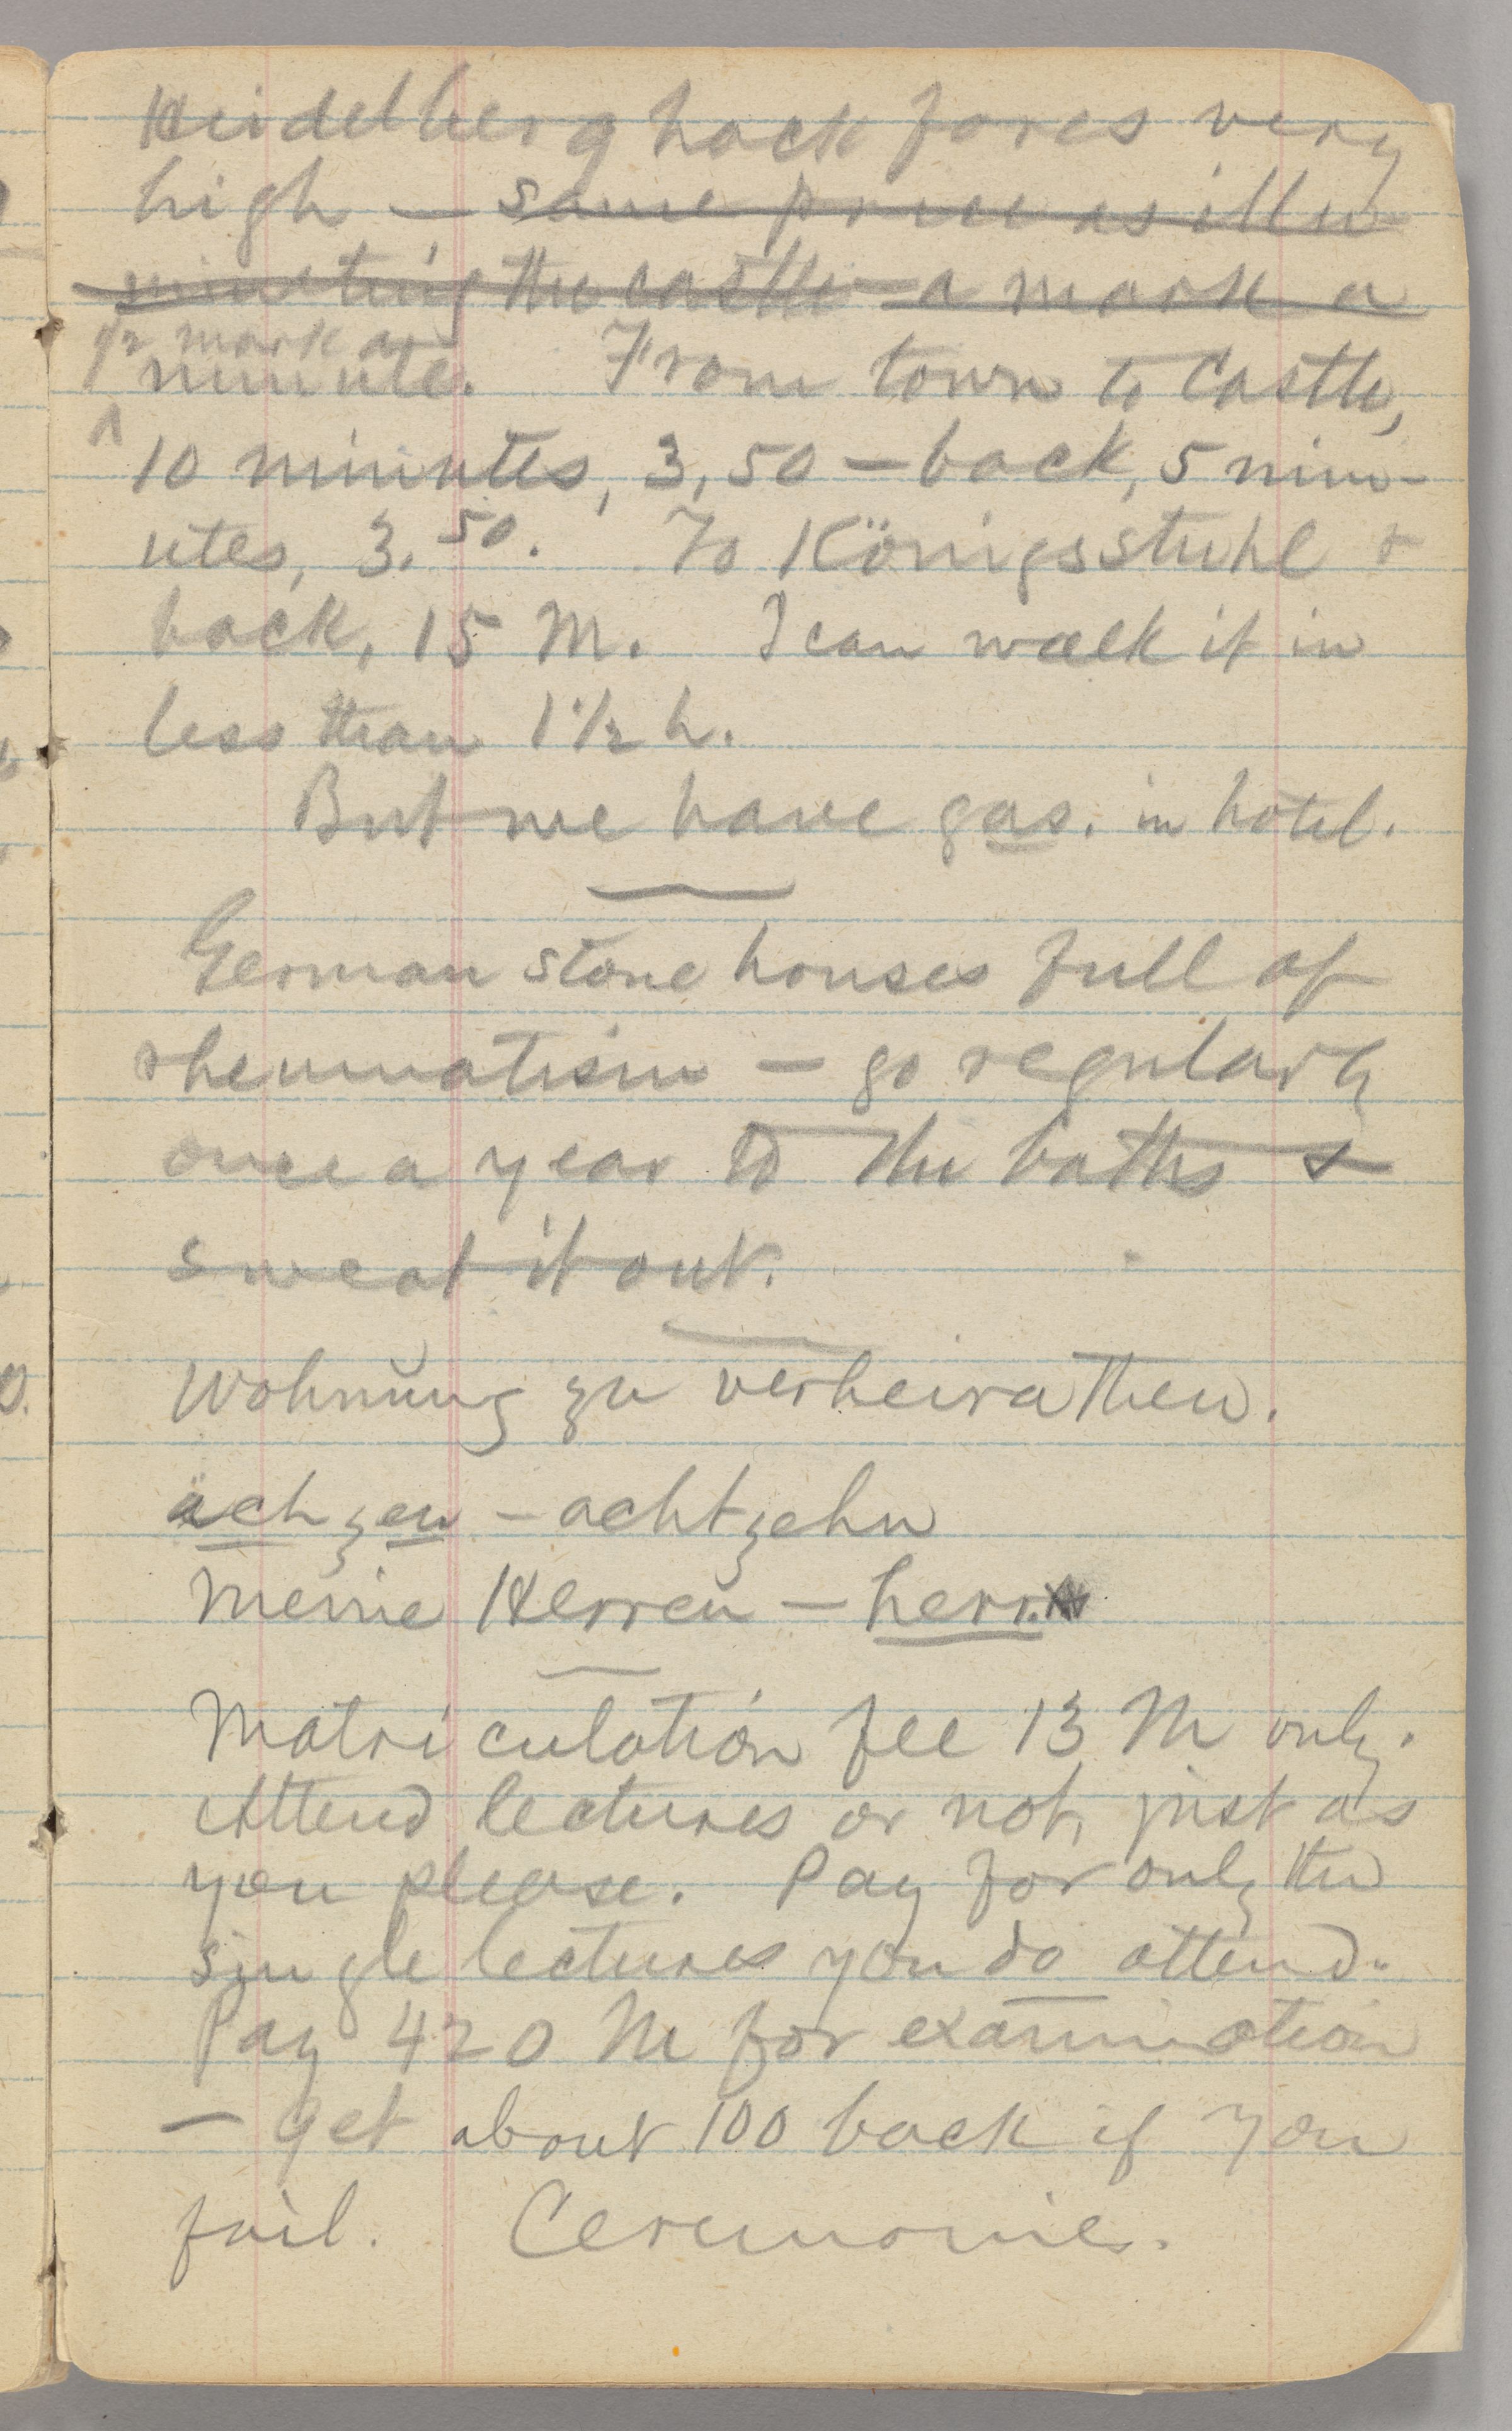 Heidelberg hack fares very
high — same price as illu-
minating the castle — a mark a
½ mark a
minute. From town to Castle,
10 minutes, 3,50 — back, 5 min-
utes, 3.50. To Königsstuhl &
back, 15 M. I can walk it in
less than 1½ h.
But we have gas. in hotel.
German stone houses full of
rheumatism — go regularly
once a year to the baths &
sweat it out.
Wohnŭng zu verheirathen.
ächzen – achtzehn
Meine Herren — herr.
Matriculation fee 13 M only.
Attend lectures or not, just as
you please. Pay for only the
single lectures you do attend.
Pay 420 M for examination
— get about 100 back if you
fail. Ceremonie.